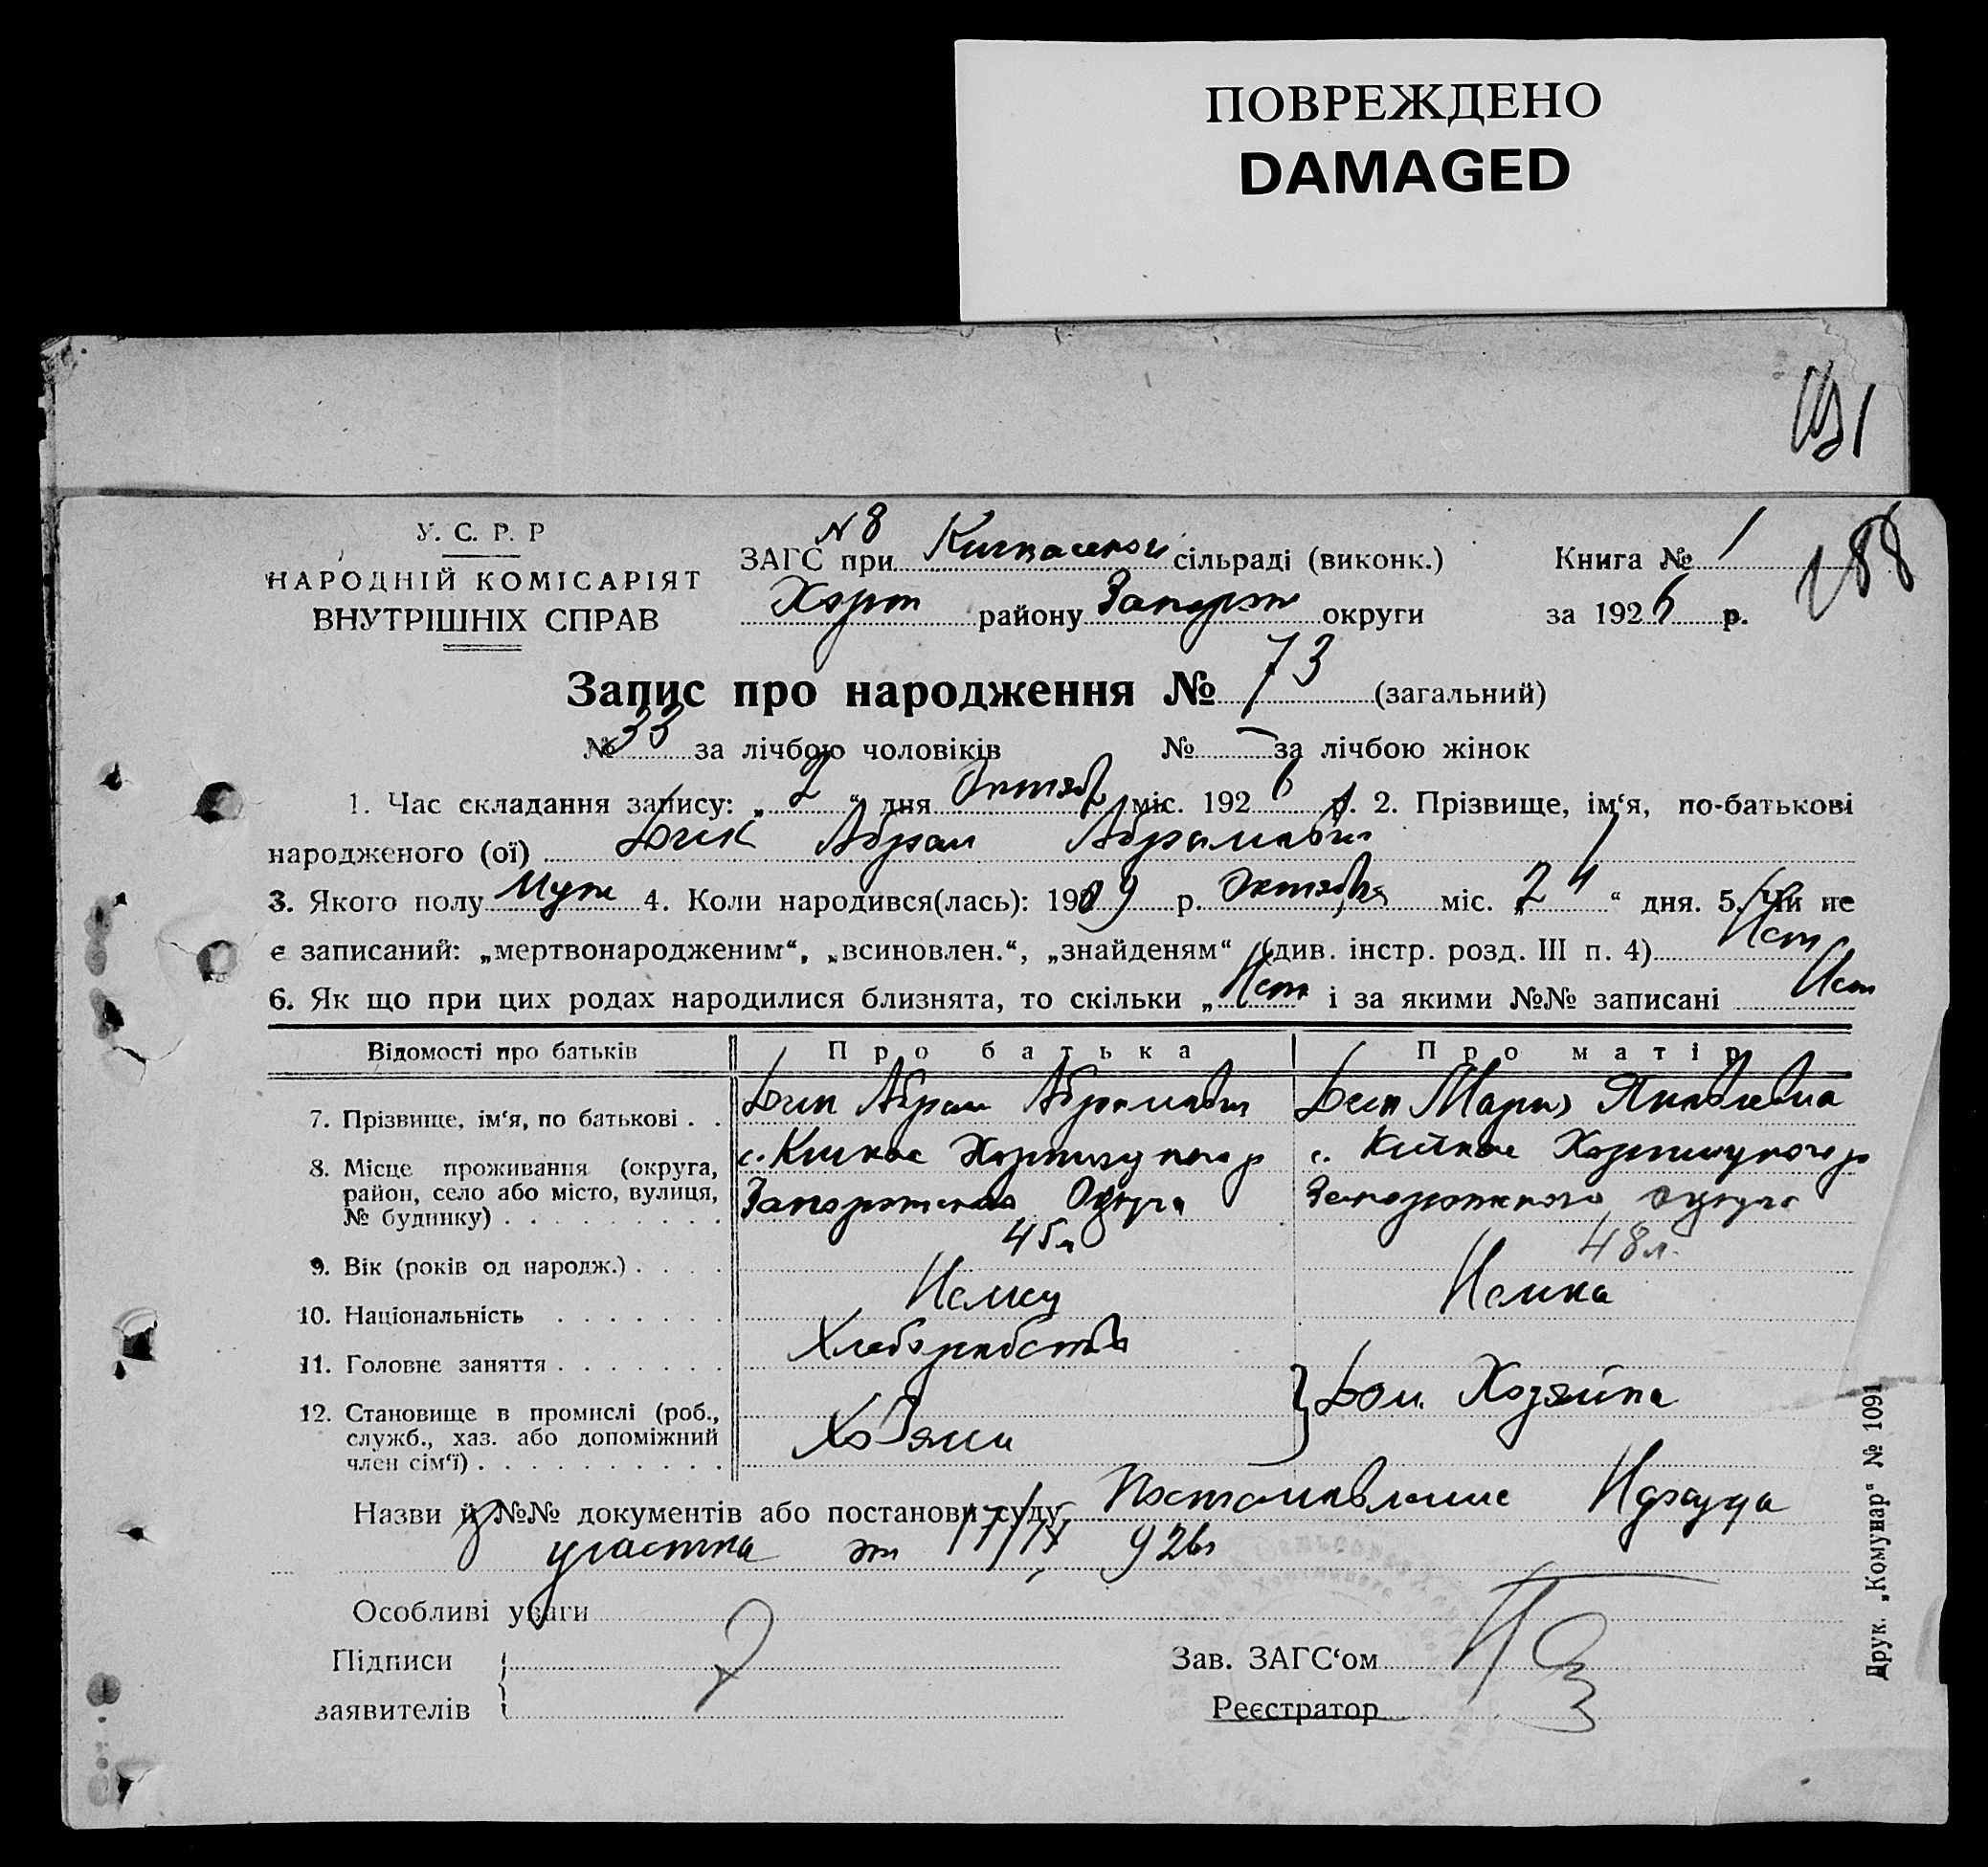 ПОВРЕЖДЕНО
DAMAGED
У. С. Р. Р
НАРОДНІЙ КОМІСАРІЯТ
ВНУТРІШНІХ СПРАВ
N 8
ЗАГС при Кичкаской сільраді (виконк.)
Хорт району Запорож округи
Книга № 1
за 1926 р.
188
Запис про народження № 73 (загальний)
№ 33 за лічбою чоловіків № — за лічбою жінок
1. Час складання запису: „2“ дня Октяб міс. 1926 р. 2. Прізвище, ім‘я, по-батькові
народженого (ої) Дик Абрам Абрамович
3. Якого полу Муж 4. Коли народився(лась): 1909 р. Октября міс. „24“ дня. 5. Чи не
є записаний: „мертвонародженим“, „всиновлен.“, „знайденям“ (див. інстр. розд. III п. 4) Нет
6. Як що при цих родах народилися близнята, то скільки „Нет“ і за якими №№ записані Нет
Відомості про батьків Про батька Про матір
7. Прізвище, ім‘я, по батькові . . Дик Абрам Абрамович Дик Мария Яковлевна
8. Місце проживання (округа, с. Кичкас Хортицкого р с. Кичкас Хортицкого р
район, село або місто, вулиця, Запорожского Округа Запорожского округа
№ будинку) . . . . . . . . .
9. Вік (років од народж.) . . . . 45 л 48 л.
10. Національність . . . . . . . Немец Немка
11. Головне заняття . . . . . . . Хлеборобство
12. Становище в промислі (роб., Хозяин Дом. Хозяйка
служб., хаз. або допоміжний
член сім‘ї) . . . . . . . . . .
Назви й №№ документів або постанови суду Постановление Нарсуда
участка от 17/IX 926г
Особливі уваги
Підписи
заявителів
Зав. ЗАГС‘ом
Реєстратор
Друк. „Комунар“ № 1091